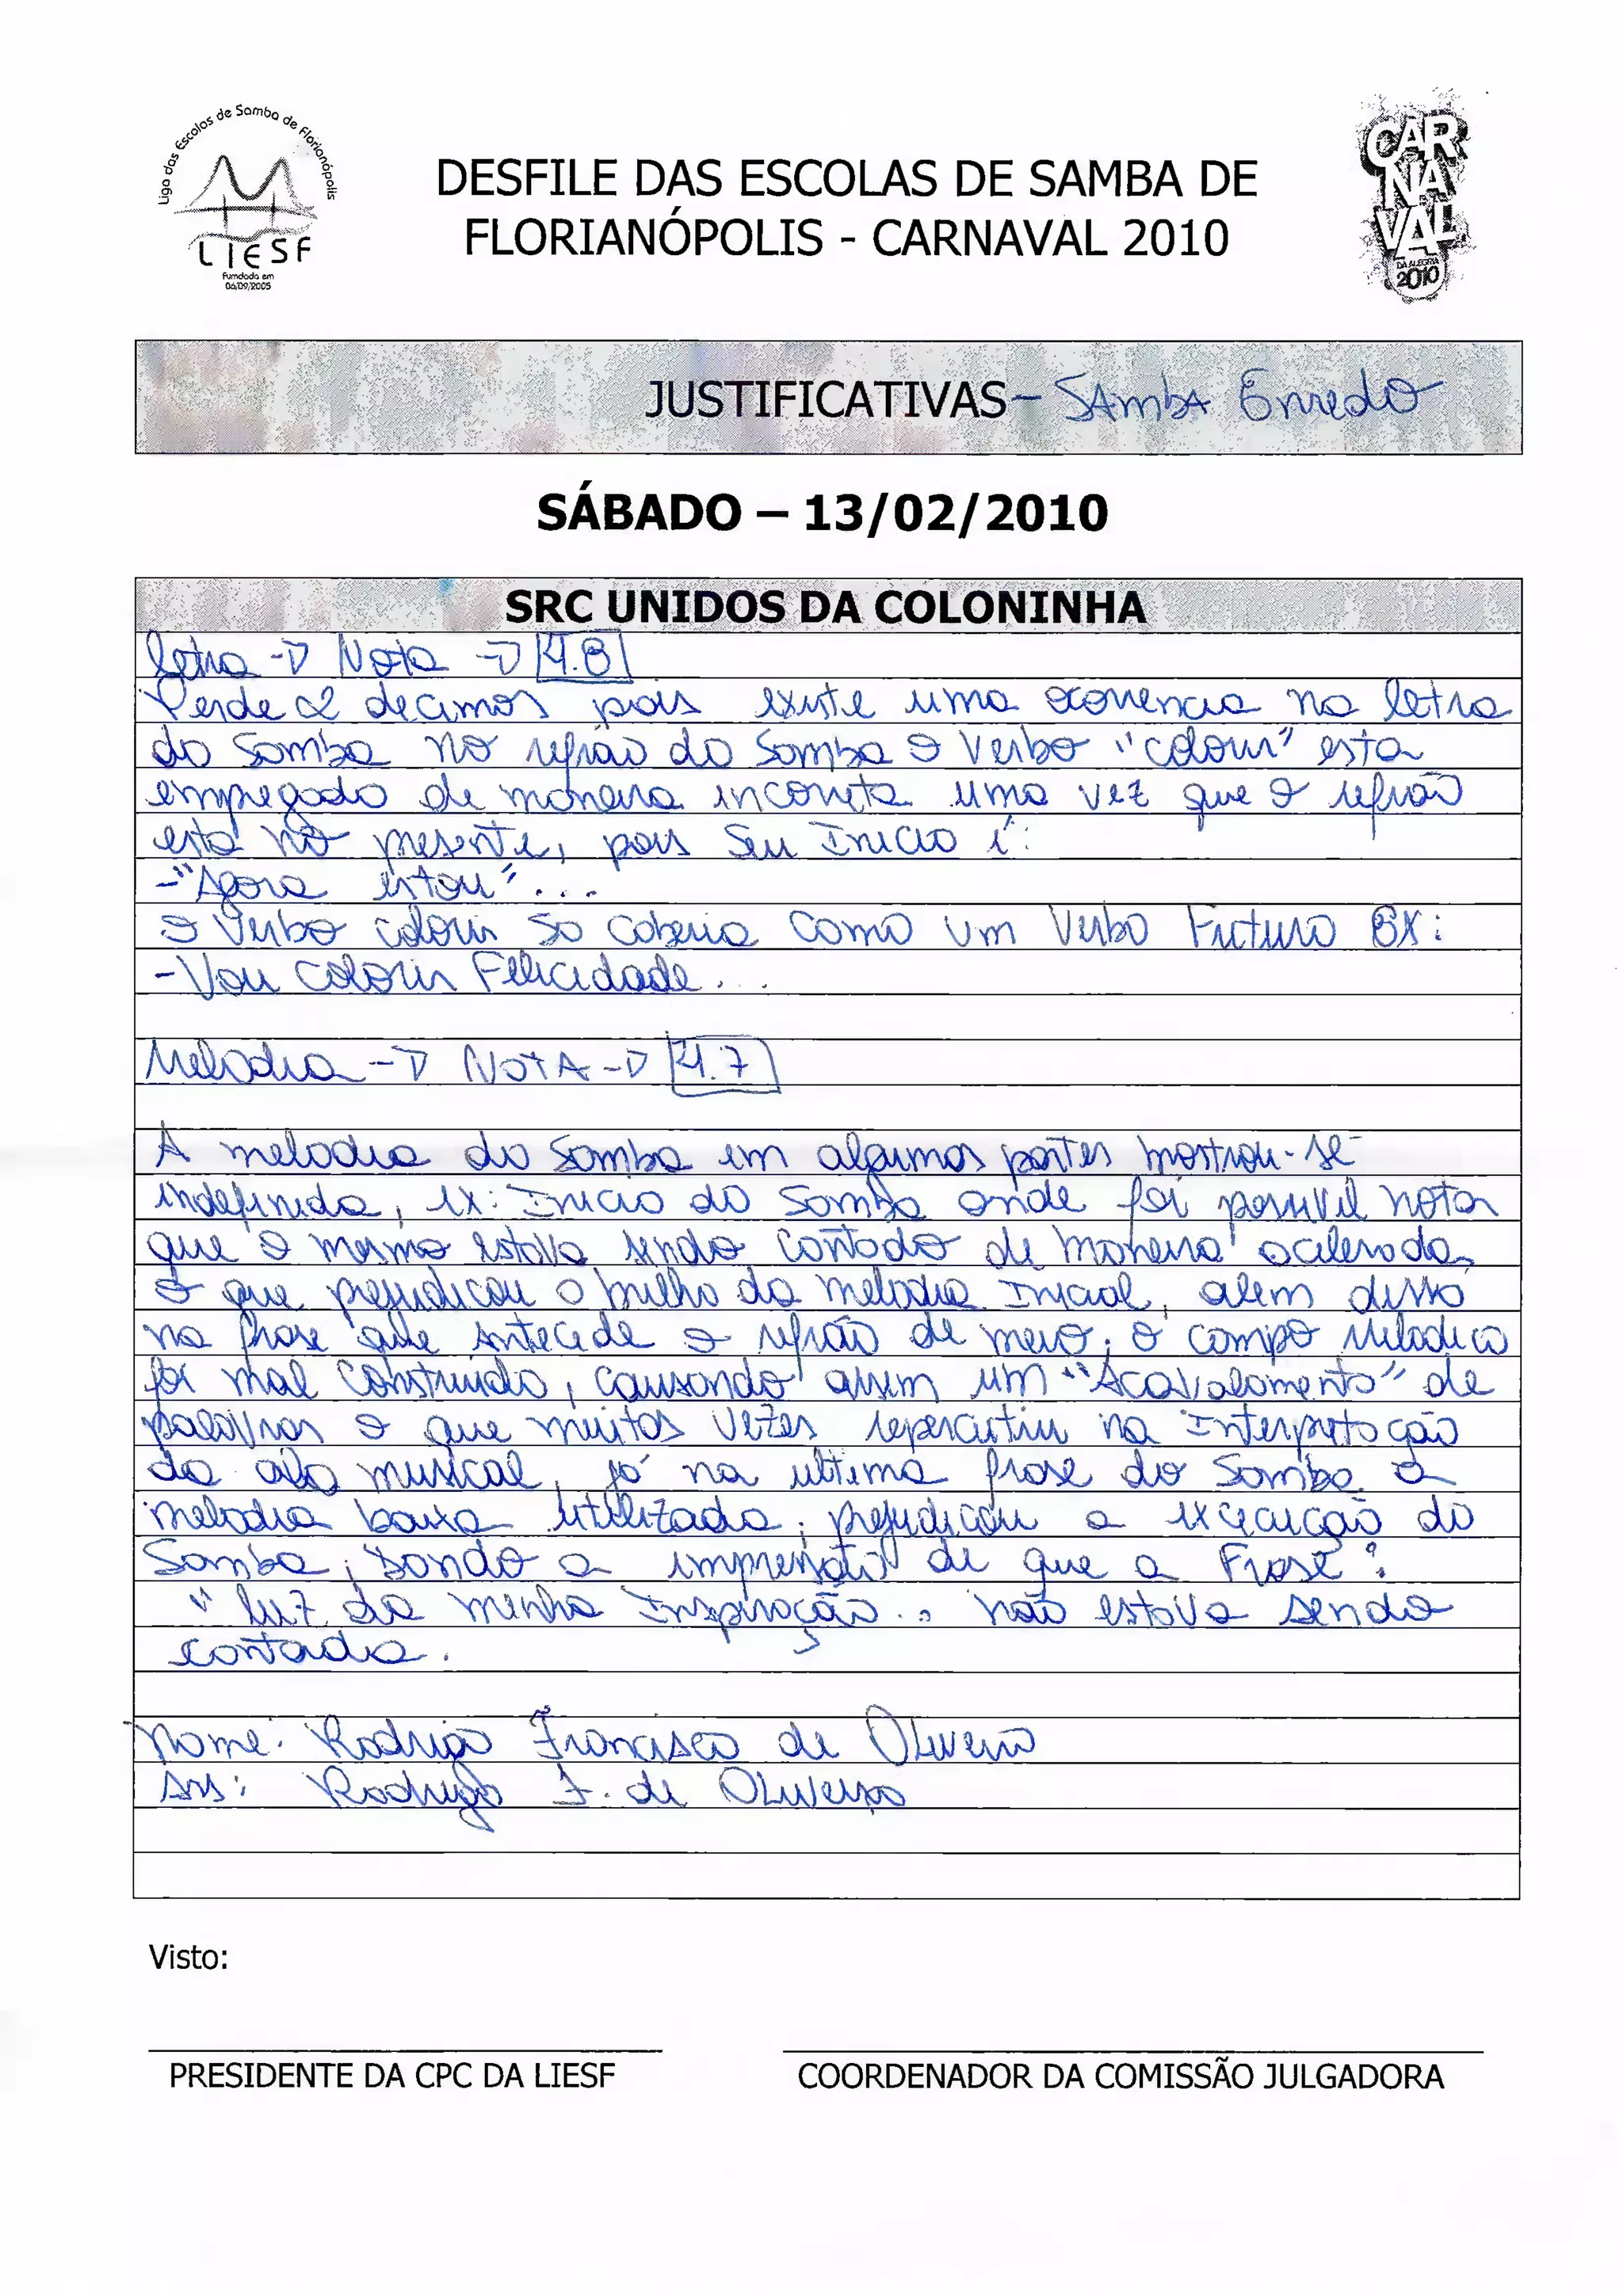 Liga das Escolas de Samba de Florianópolis
LIESF
Fundada em
06/09/2005
DESFILE DAS ESCOLAS DE SAMBA DE
FLORIANÓPOLIS - CARNAVAL 2010
CAR
NA
VAL
DA ALEGRIA
2010
JUSTIFICATIVAS - SAmbA Enredo
SÁBADO – 13/02/2010
SRC UNIDOS DA COLONINHA
Letra -> Nota -> 4.8
Perde 2 decimos pois existe uma ocorrencia na letra
do Samba no refrão do Samba o Verbo "colorir" esta
empregado de maneira incorreta uma vez que o refrão
está no presente, pois Seu Inicio é:
-"Agora estou"...
O Verbo colorir So caberia Como um Verbo Futuro EX:
-Vou Colorir Felicidade...
Melodia -> NOTA -> 4.7
A melodia do Samba em algumas partes mostrou-se
indefinida, ex: Inicio do Samba onde foi possivel notar
que o mesmo estava sendo cantado de maneira acelerada,
o que prejudicou o brilho da melodia Inicial, alem disso
na frase que antecede o refrão de meio, o campo melodico
foi mal Construido, causando assim um "Acavalamento" de
palavras o que muitas vezes repercutiu na Interpretação
da ala musical, já na ultima frase do Samba a
melodia baixa utilizada, prejudicou a execução do
Samba, dando a impressão de que a Frase:
" luz da minha Inspiração.. não estava sendo
cantada.
Nome: Rodrigo Francisco de Oliveira
Ass: Rodrigo F. de Oliveira
Visto:
PRESIDENTE DA CPC DA LIESF
COORDENADOR DA COMISSÃO JULGADORA